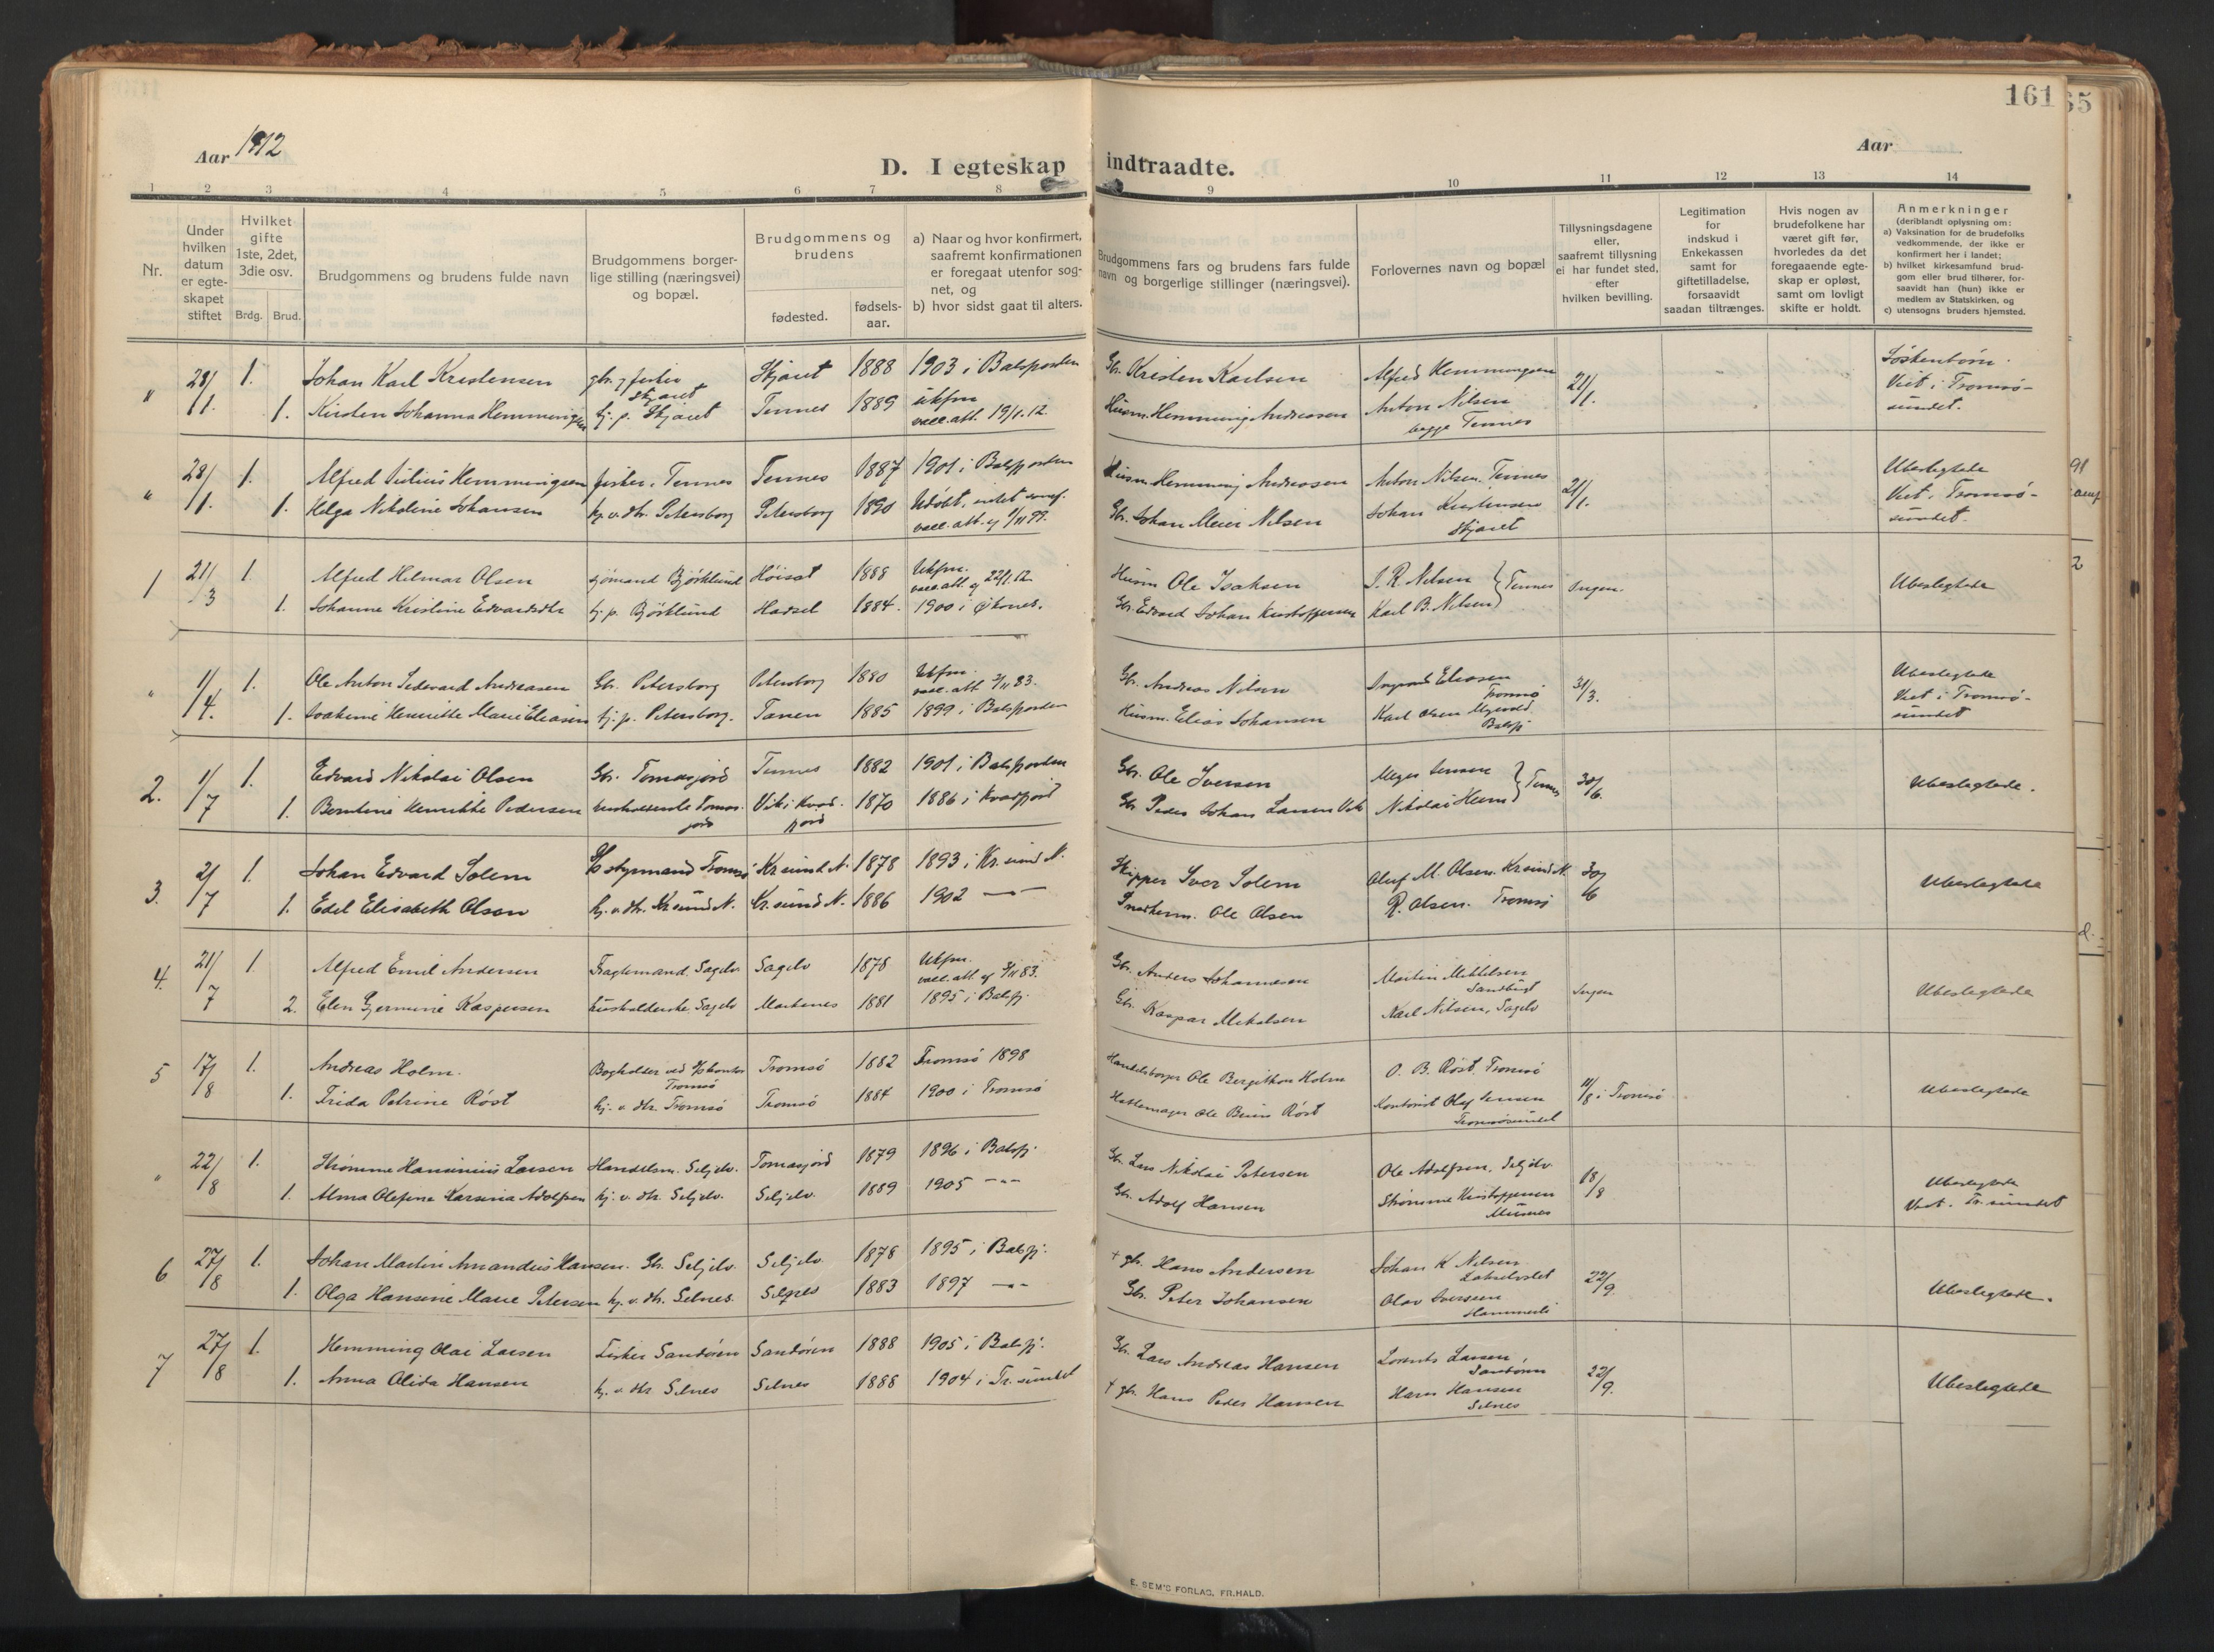 161
65
Aar 1912
Aar
D. I egteskap indtraadte.
1 2 3 4 5 6 7 8 9 10 11 12 13 14
Nr.
Under hvilken datum er egteskapet stiftet
Hvilket gifte 1ste, 2det, 3die osv.
Brdg. Brud.
Brudgommens og brudens fulde navn
Brudgommens borgerlige stilling (næringsvei) og bopæl.
Brudgommens og brudens
fødested.
fødselsaar.
a) Naar og hvor konfirmert, saafremt konfirmationen er foregaat utenfor sognet, og
b) hvor sidst gaat til alters.
Brudgommens fars og brudens fars fulde navn og borgerlige stillinger (næringsvei).
Forlovernes navn og bopæl
Tillysningsdagene eller, saafremt tillysning ei har fundet sted, efter hvilken bevilling.
Legitimation for indskud i Enkekassen samt for giftetilladelse, forsaavidt saadan tiltrænges.
Hvis nogen av brudefolkene har været gift før, hvorledes da det foregaaende egteskap er opløst, samt om lovligt skifte er holdt.
Anmerkninger
(deriblandt oplysning om:
a) Vaksination for de brudefolks vedkommende, der ikke er konfirmert her i landet;
b) hvilket kirkesamfund brudgom eller brud tilhører, forsaavidt han (hun) ikke er medlem av Statskirken, og
c) utensogns bruders hjemsted.
" 28/1. 1. Johan Karl Kristensen gbr. y fisker Skjaret Skjaret 1888 1903 i Balsfjorden Gbr. Kristen Karlsen Alfred Hemmingsen 21/1. Söskenbörn.
1. Kirsten Johanna Hemmingsen hj. p. Skjaret Tennes 1889 ukfm vacc. att. 19/1.12. Husm. Hemming Andreasen Anton Nilsen begge Tennes Viet i Tromsösundet.
" 28/1. 1. Alfred Julius Hemmingsen fisker, Tennes Tennes 1887 1901 i Balsfjorden Husm. Hemming Andreasen Anton Nilsen. Tennes 21/1. Ubeslegtede
1. Helga Nikoline Johansen hj. v. dtr. Petersborg Petersborg 1890 vacc. att. Gbr. Johan Meier Nilsen Johan Kristensen Skjaret Viet i Tromsösundet.
1 21/3 1. Alfred Hilmar Olsen sjömand Björklund Höiset 1888 Ukfm. vacc. att. af 22/1.12. Husm Ole Isaksen I. R. Nilsen } Tennes Ingen. Ubeslegtede
1. Johanne Kristine Edvardsdtr hj. p. Björklund Hadsel 1884. 1900 i Öksnes. Gbr. Edvard Johan Kristoffersen Karl B. Nilsen
" 1/4. 1. Ole Anton Sedevard Andreasen Gbr. Petersborg Petersborg 1880 Ukfm. vacc. att. 3/11 83. Gbr. Andreas Nilsen Eliasen Tromsö 31/3. Ubeslegtede
1. Joakime Henrikke Marie Eliasen hj. p. Petersborg. Tanen 1885 1899 i Balsfjorden Husm. Elias Johansen Karl Olsen Balsfj Viet i Tromsösundet
2. 1/7 1. Edvard Nikolai Olsen Gbr. Tomasjord Tennes 1882 1901 i Balsfjorden Gbr. Ole Iversen Meyer Jensen } Tennes 30/6. Ubeslegtede.
1. Berntine Henrikke Pedersen husholderske Tomasjord Vik i Kvadfjord 1870 1886 i Kvadfjord Gbr Peder Johan Larsen Vik Nikolai Heim
3. 2/7 1. Johan Edvard Solem styrmand Tromsö Kr.sund N. 1878 1893 i Kr.sund N. Skipper Iver Solem Oluf M. Olsen. Kr.sund N. 30/6 Ubeslegtede
1. Edel Elisabeth Olsen hj. v. dtr. Kr.sund N. Kr.sund N. 1886 1902 —"— Ole Olsen R. Olsen. Tromsö
4. 21/7 1. Alfred Emil Andersen Fragtemand. Sagelv Sagelv 1878 Ukfm. vacc. att. af 3/11 83. Gbr. Anders Johannesen Martin Mikkelsen Sandbugt Ingen Ubeslegtede
2. Elen Germine Kaspersen husholderske. Sagelv Markenes 1881 1895 i Balsfj. Gbr. Kaspar Mikalsen Karl Nilsen, Sagelv
5 17/8 1. Andreas Holm. Bogholder ved Tromsö Tromsö 1882 Tromsö 1898 Handelsborger Ole Bergithon Holm O. B. Röst. Tromsö 11/8 i Tromsö Ubeslegtede
1. Frida Petrine Röst hj. v. dtr. Tromsö Tromsö 1884 1900 i Tromsö Hattemager Ole Röst Kontorist Olaf Jensen Tromsösundet
" 22/8 1. Strömme Hansinius Larsen Handelsm. Seljelv. Tomasjord 1879 1896 i Balsfj. Gbr. Lars Nikolai Petersen Ole Adolfsen. Seljelv. 18/8 Ubeslegtede
1. Alma Olefine Karsinia Adolfsen hj. v. dtr. Seljelv. Seljelv. 1889 1905 —"— Gbr. Adolf Hansen Strömme Kristoffersen Viet. Tr.sundet
6 27/8 1. Johan Martin Amandus Hansen. Gbr. Seljelv. Seljelv. 1878 1895 i Balsfj. + gbr. Hans Andersen Johan K Nilsen Lakselvslet 22/9. Ubeslegtede.
1. Olga Hansine Marie Petersen hj. v. dtr. Selnes. Selnes 1883 1897 —"— Gbr. Peter Johansen Olav Iversen
7 27/8 1. Hemming Olai Larsen Fisker Sandören Sandören 1888 1905 i Balsfj. Gbr. Lars Andreas Hansen Lorents Larsen Sandören 22/9. Ubeslegtede
1. Anna Olida Hansen hj. v. dtr Selnes Selnes 1888 1904 i Tr.sundet + gbr. Hans Peder Hansen Hans Hansen Selnes
E. SEM'S FORLAG, FR.HALD.